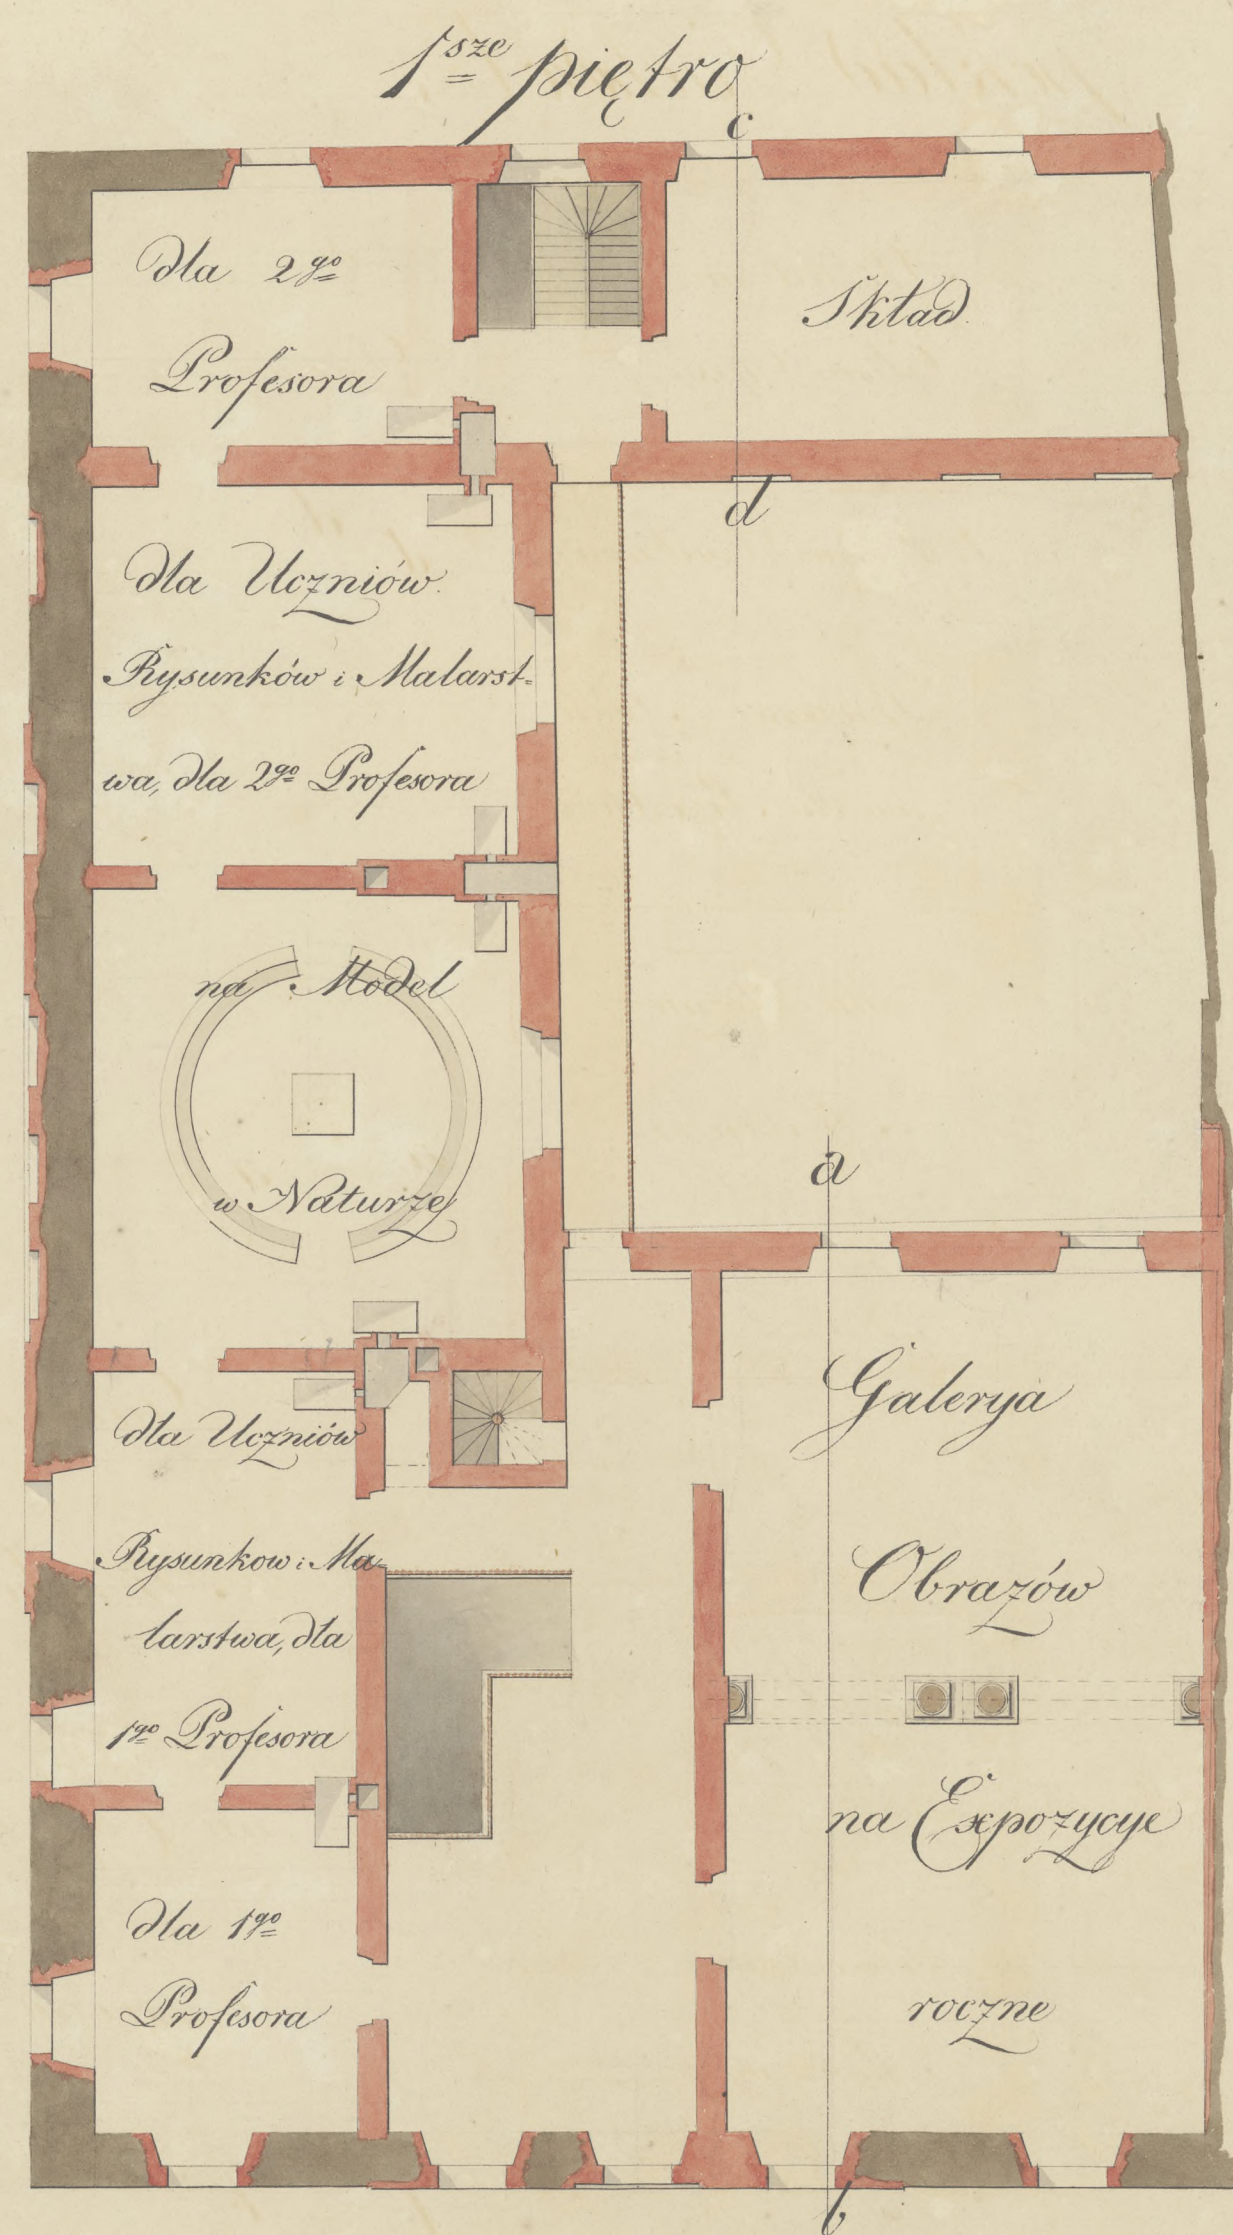 1sze piętro
c
dla 2go
Profesora
Skład
d
dla Uczniów
Rysunków i Malarst-
wa, dla 2go Profesora
na Model
w Naturze
a
dla Uczniów
Rysunkow i Ma-
larstwa, dla
1go Profesora
dla 1go
Profesora
Galerya
Obrazów
na Expozycye
roczne
b